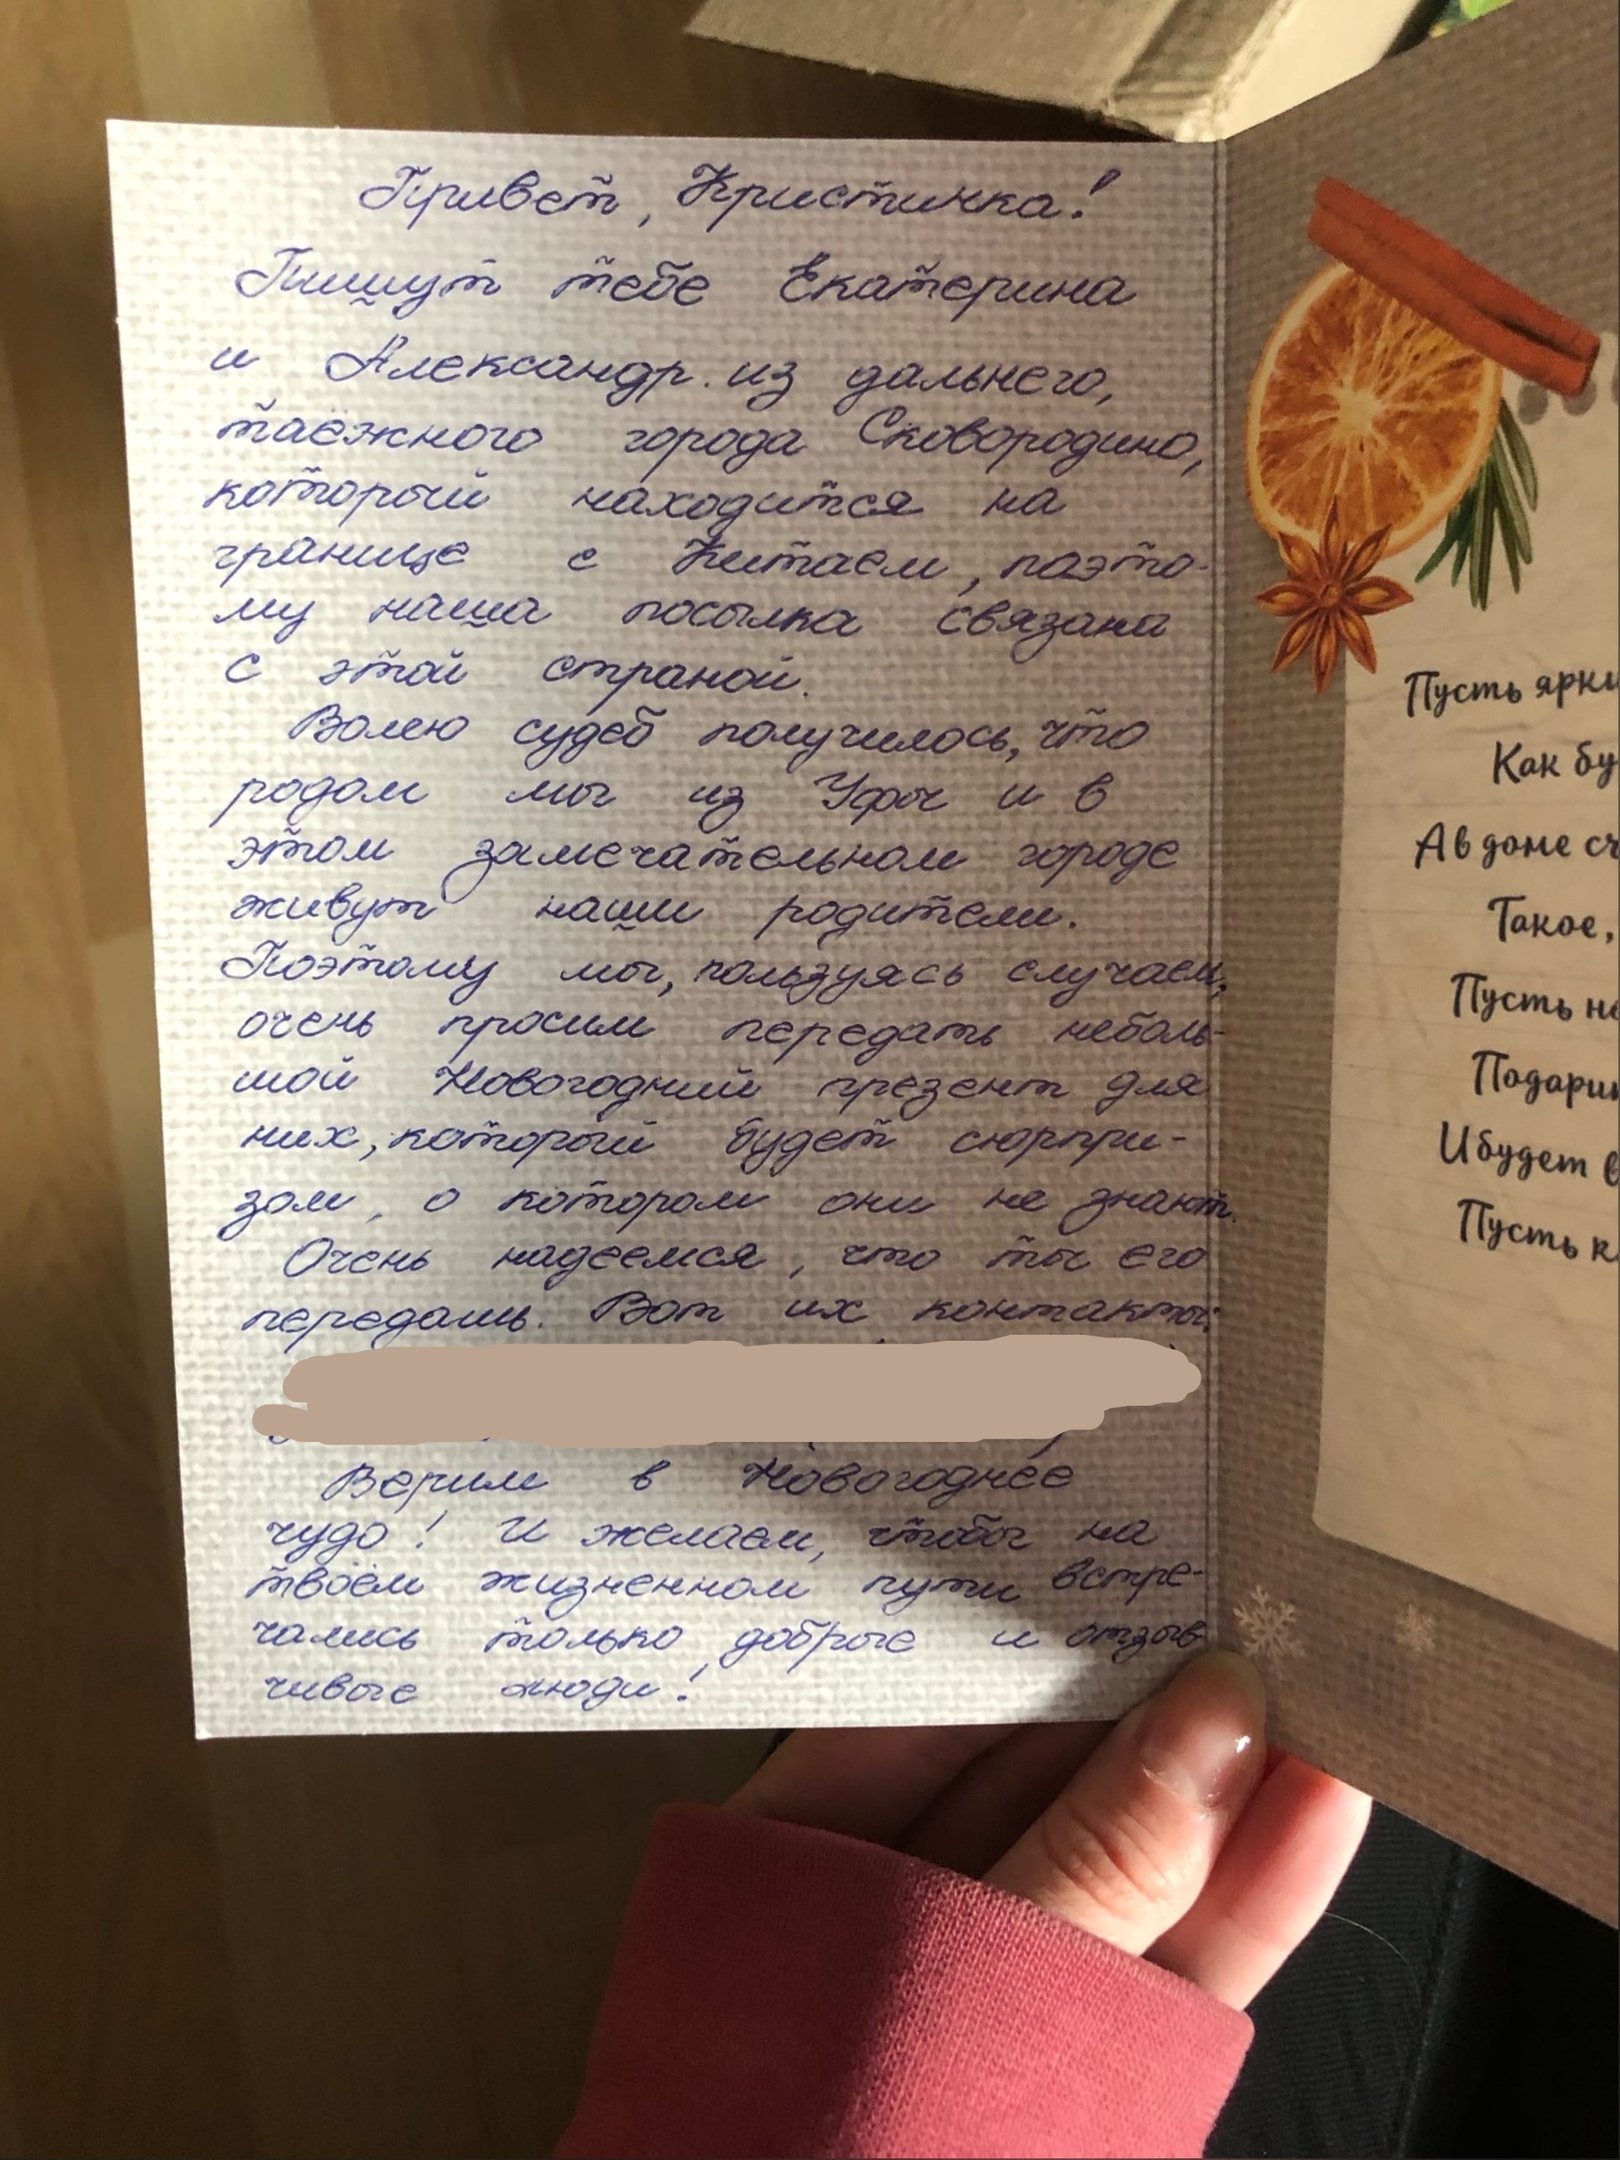 Привет, Кристинка!
Пишут тебе Екатерина
и Александр из дальнего,
таёжного города Сковородино,
который находится на
границе с Китаем, поэто-
му наша посылка связана
с этой страной.
Волею судеб получилось, что
родом мы из Уфы и в
этом замечательном городе
живут наши родители.
Поэтому мы, пользуясь случаем,
очень просим передать неболь-
шой Новогодний презент для
них, который будет сюрпри-
зом, о котором они не знают.
Очень надеемся, что ты его
передашь. Вот их контакты:
Верим в Новогоднее
чудо! И желаем, чтобы на
твоём жизненном пути встре-
чались только добрые и отзыв-
чивые люди!
Пусть ярки
Как бу
А в доме сч
Такое,
Пусть но
Подари
И будет в
Пусть к